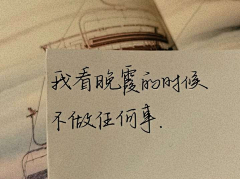 我看晚霞的时候
不做任何事.